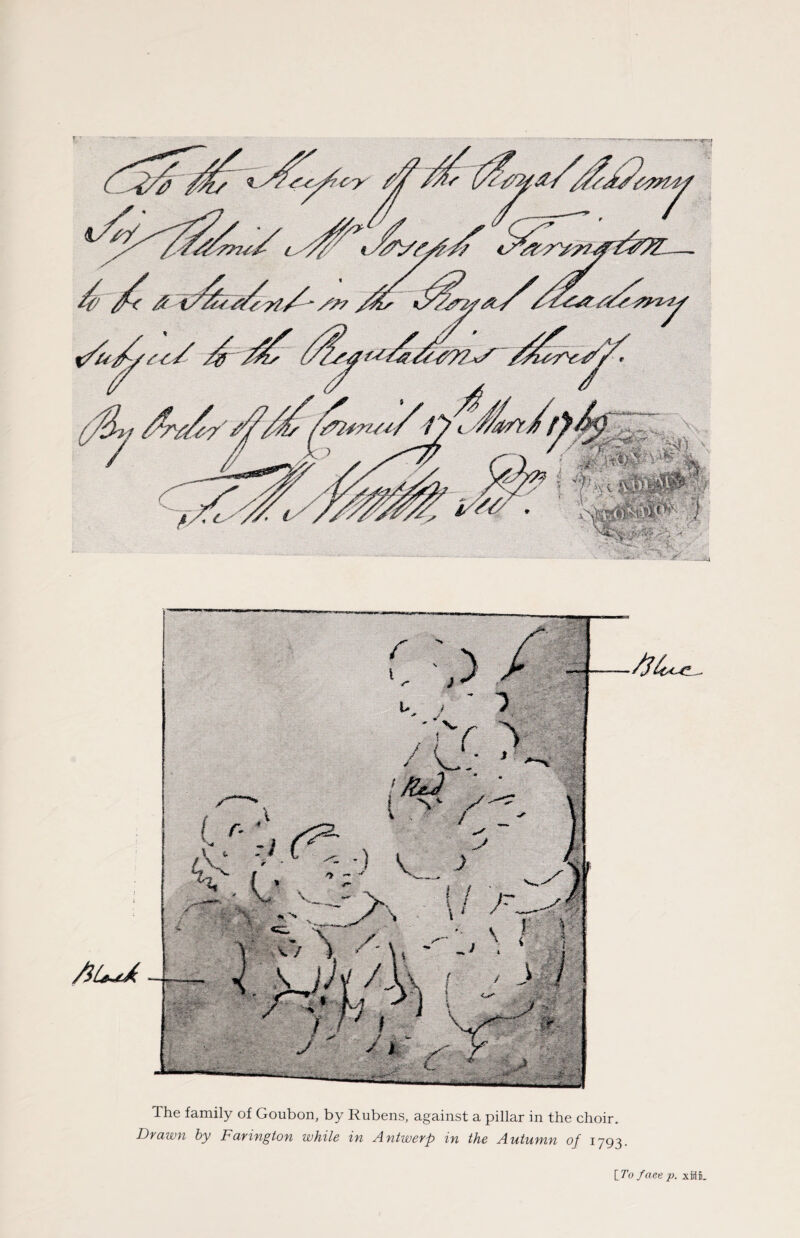 To the Keeper of the Royal Academy
Sir / Admit Mr Joseph Farington
to be a Student in the Royal Academy
Subject to the Regulations thereof.
By Order of the Council 17 March 1769
F. M. Newton, Secy.
ROYAL
ACADEMY
LONDON
Blue
Red
Black
The family of Goubon, by Rubens, against a pillar in the choir.
Drawn by Farington while in Antwerp in the Autumn of 1793.
[To face p. xiii.